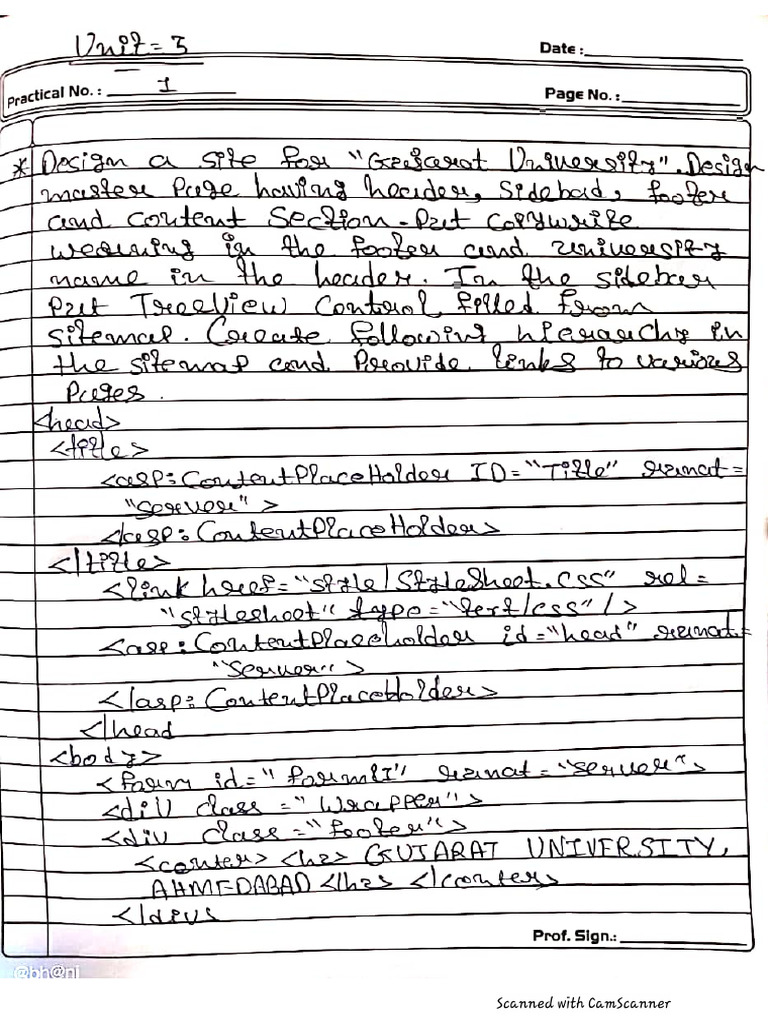 Unit = 3
Date :
Practical No. : 1
Page No. :
* Design a site for "Gujarat University". Design
master Page having header, sidebad, footer
and content Section. Put Copywrite
wearning in the footer and university
name in the header. In the sidebar
Put TreeView Control filled from
sitemap. Create following hierarchy in
the sitemap and Provide links to various
Pages.
<head>
<title>
<asp:ContentPlaceHolder ID="Title" runat=
"server">
</asp:ContentPlaceHolder>
</title>
<link href="style/StyleSheet.css" rel=
"stylesheet" type="text/css"/>
<asp:ContentPlaceholder id="head" runat=
"server">
</asp:ContentPlaceHolder>
</head
<body>
<form id="form1" runat="server">
<div class="Wrapper">
<div class="footer">
<center><h2> GUJARAT UNIVERSITY,
AHMEDABAD </h2> </center>
</div>
Prof. Sign.:
@bh@ni
Scanned with CamScanner